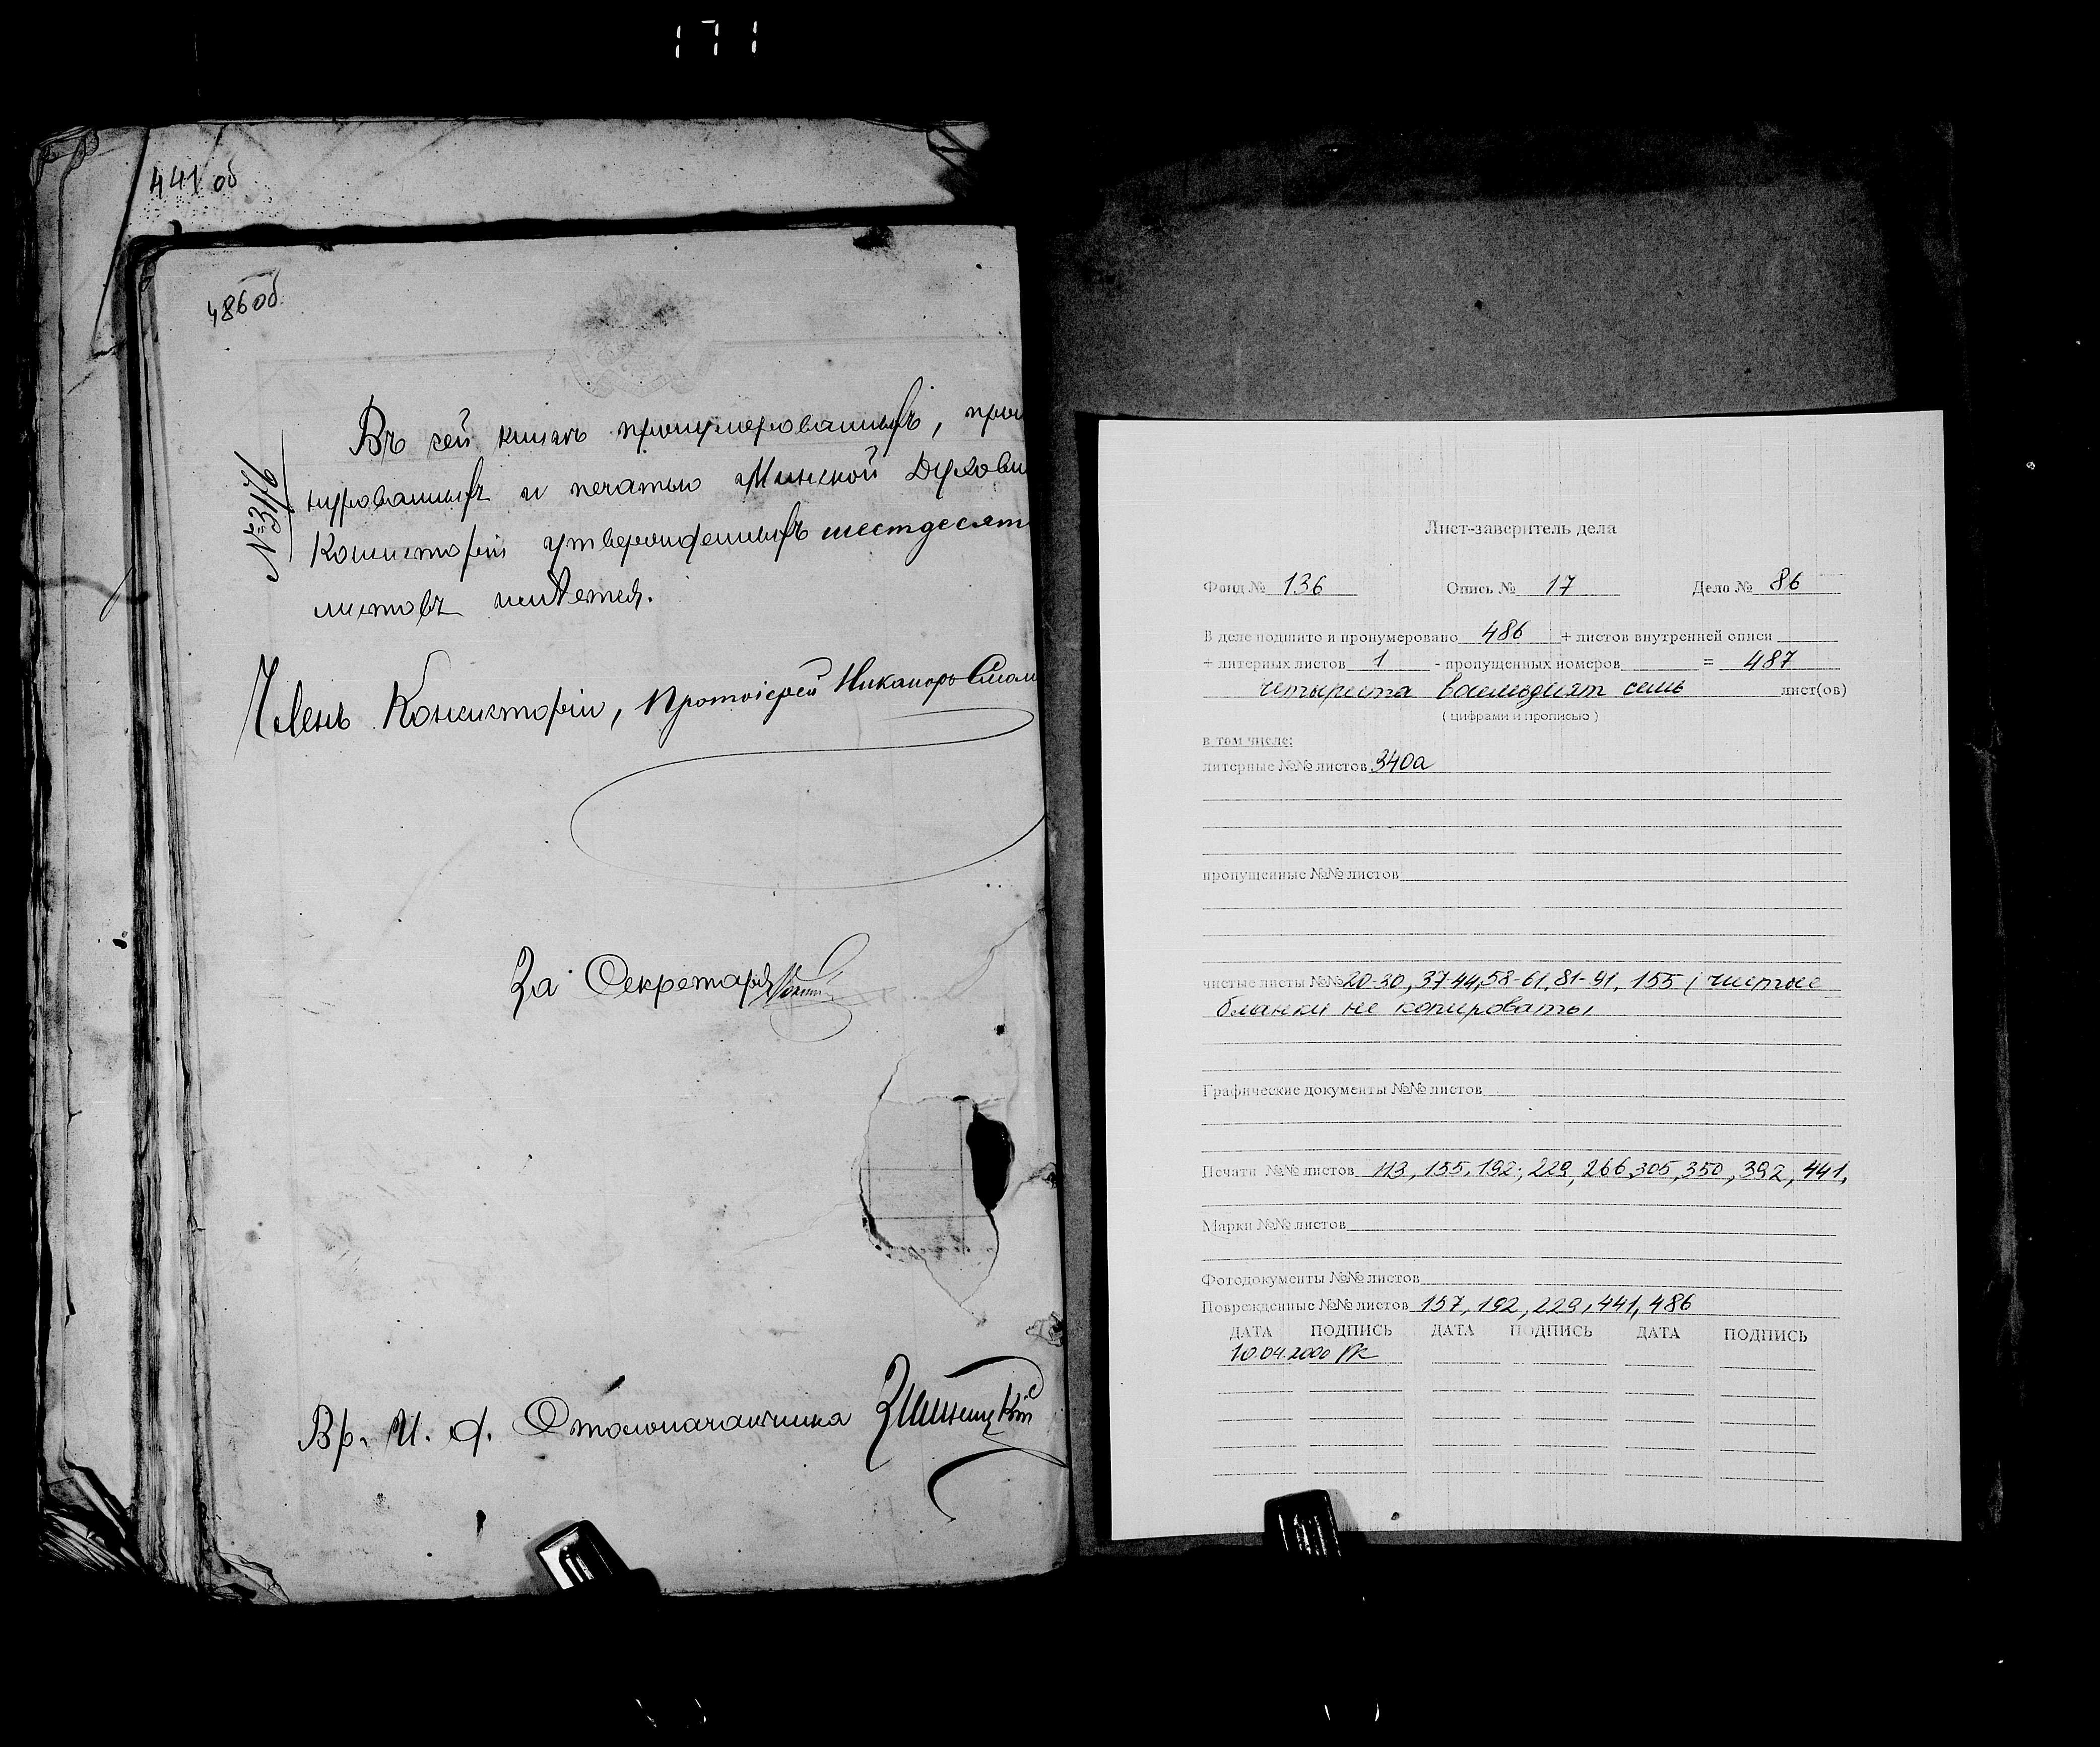 441 об
486 об
№ 3176
Въ сей книгѣ пронумерованныхъ, про
нурованныхъ и печатью Минской Духовн
Консисторіи утвержденныхъ шестдесят
листовъ имѣется.
Членъ Консисторіи, Протоіерей Никаноръ Смол
За Секретаря
Вр. И. д. Столоначальника
Лист-заверитель дела
Фонд № 136 Опись № 17 Дело № 86
В деле подшито и пронумеровано 486 + листов внутренней описи
+ литерных листов 1 - пропущенных номеров = 487
четыреста восемьдесят семь лист(ов)
( цифрами и прописью )
в том числе:
литерные №№ листов 340а
пропущенные №№ листов
чистые листы №№ 20-30, 37-44, 58-61, 81-91, 155 ( чистые
бланки не копировать)
Графические документы №№ листов
Печати №№ листов 113, 155, 192, 229, 266, 305, 350, 392, 441,
Марки №№ листов
Фотодокументы №№ листов
Поврежденные №№ листов 157, 192, 229, 441, 486
ДАТА ПОДПИСЬ ДАТА ПОДПИСЬ ДАТА ПОДПИСЬ
10.04.2000